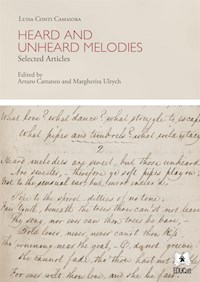 LUISA CONTI CAMAIORA
HEARD AND
UNHEARD MELODIES
Selected Articles
Edited by
Arturo Cattaneo and Margherita Ulrych
What love? what dance? what struggle to escape
What pipes and timbrels? what wild
Heard melodies are sweet, but those unheard
Are sweeter, – therefore ye soft pipes play on
Not to the sensual ear, but, more
Pipe to the spirit ditties of no tone.
Fair youth, beneath the trees thou canst not leave
Thy song, nor ever can those trees be bare,
Bold lover, never, never canst thou
winning near the goal, – O, do not grieve
She cannot fade, tho' thou hast not
For ever wilt thou love, and she be fair
EDUCatt